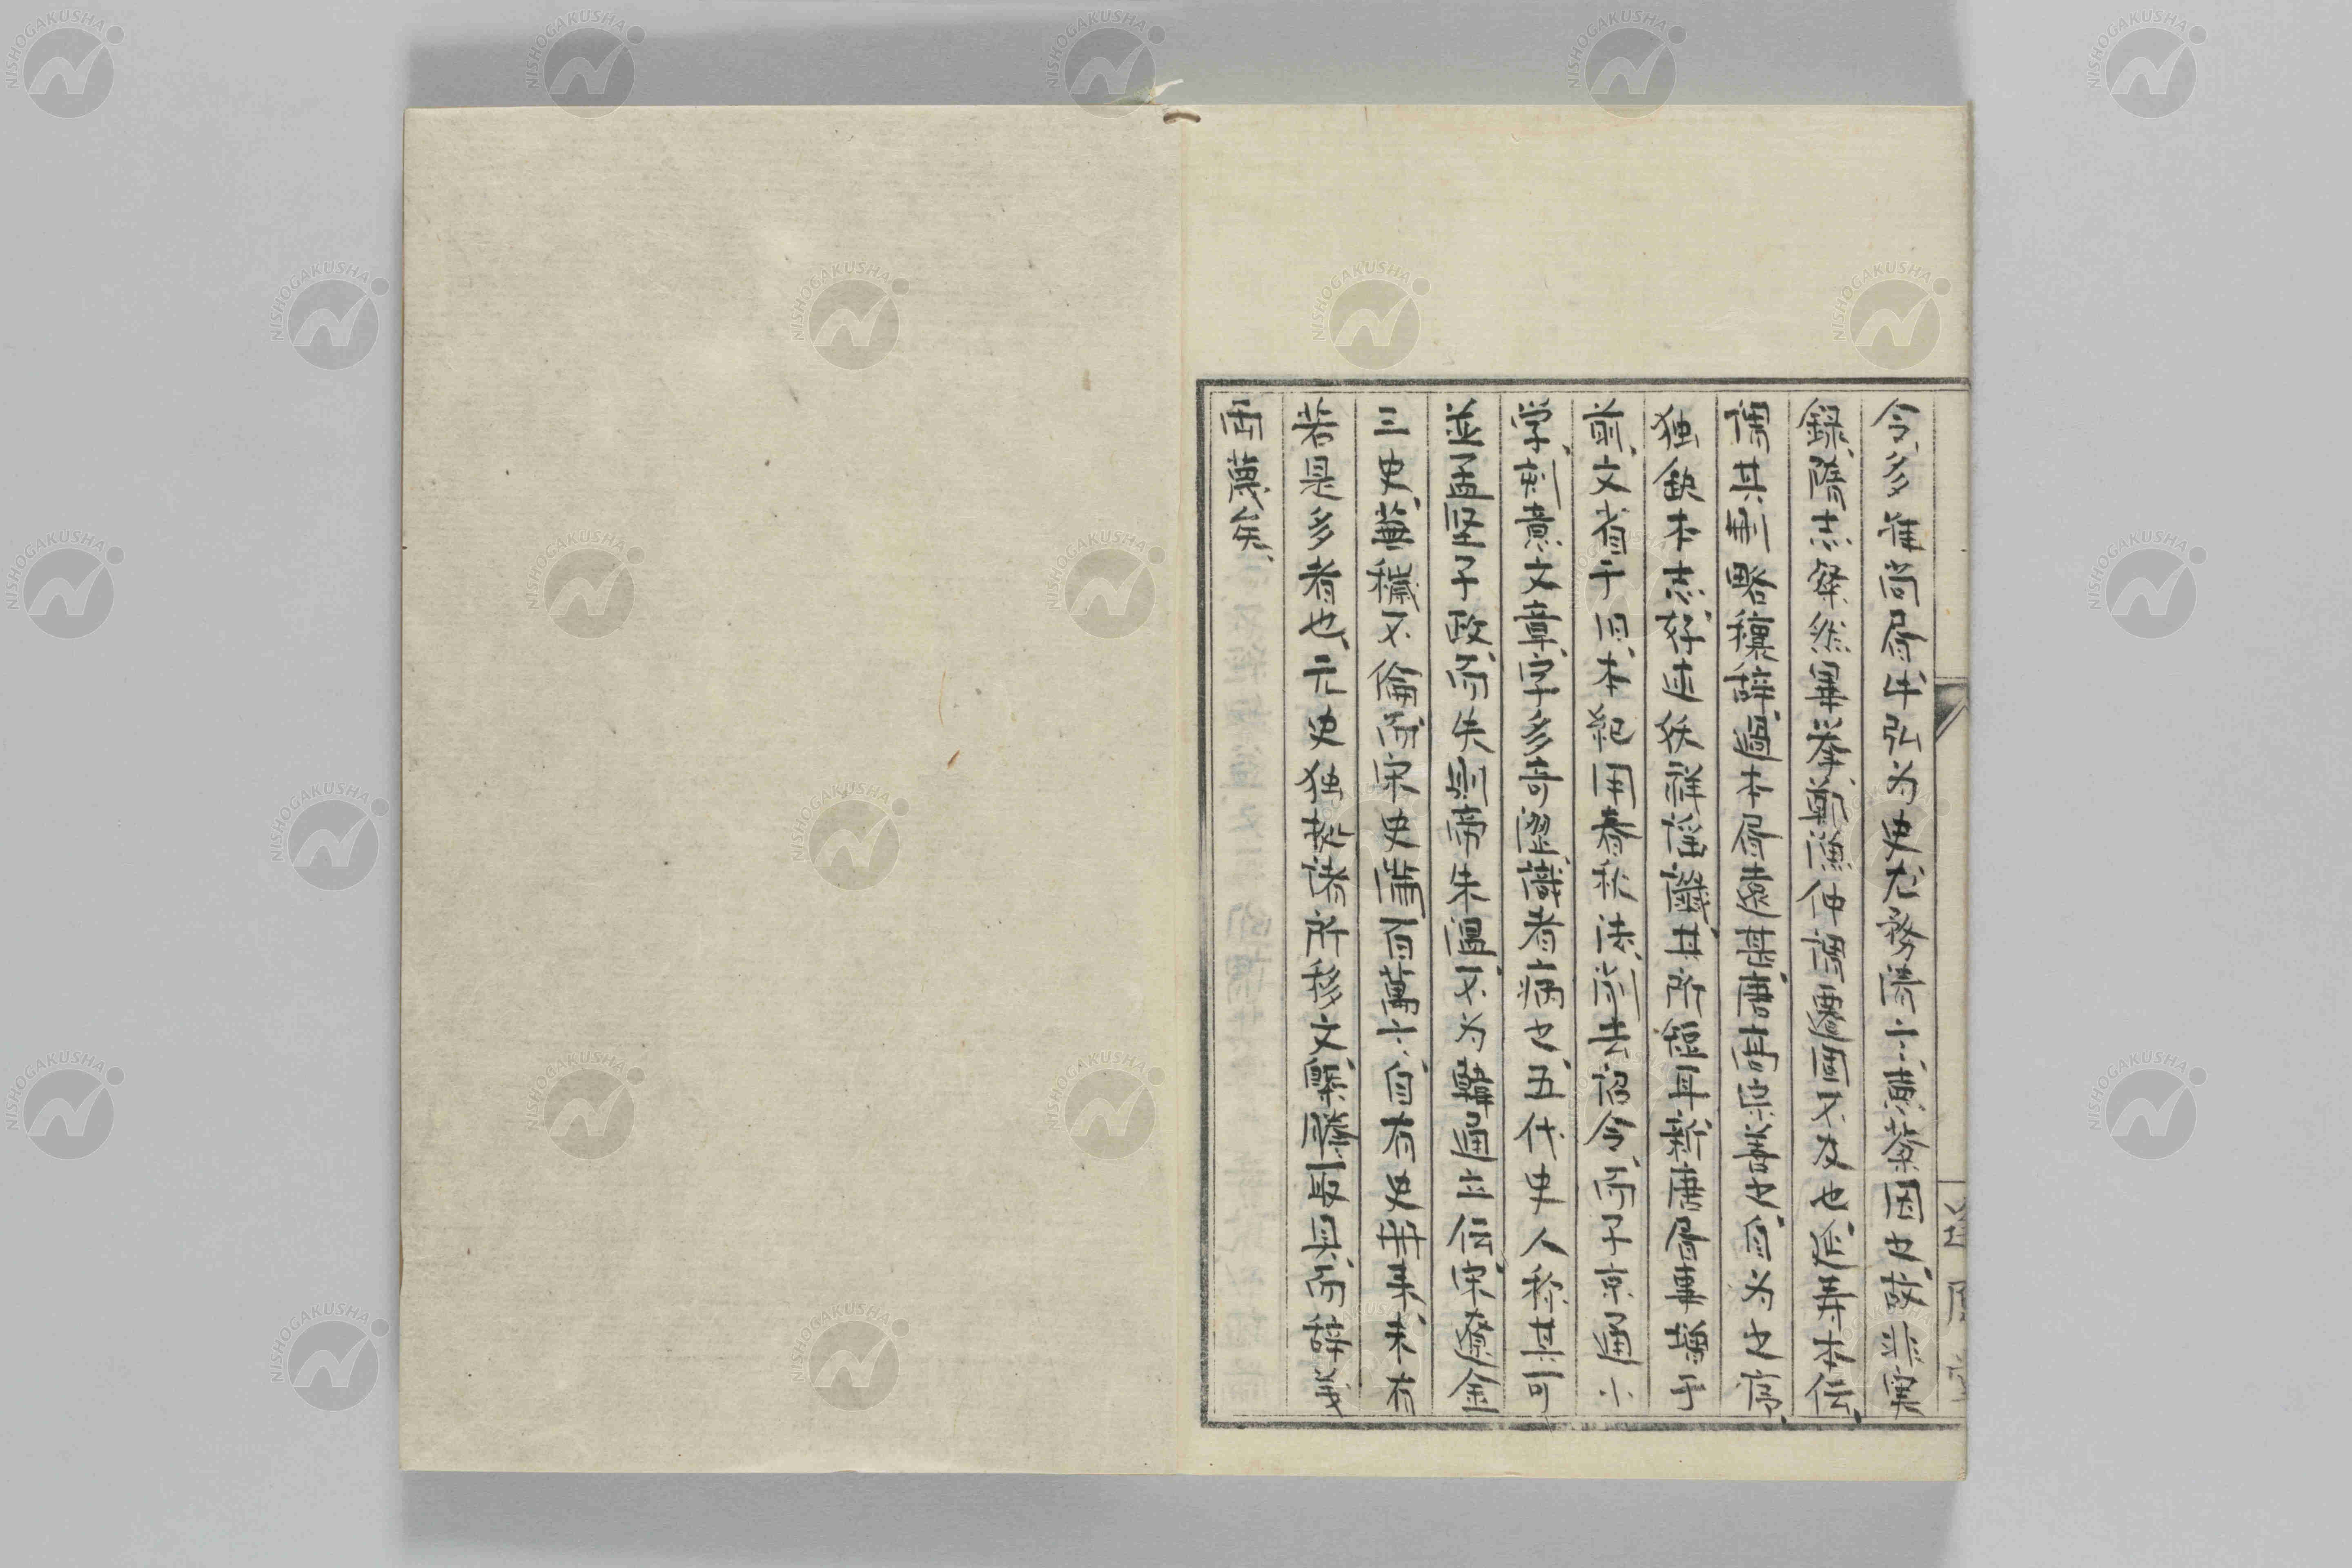 令多准尚屑牛弘为史尤務済亠黄蔡因也故非梁
録隋志粲然畢挙鄭漁仲謂遷固不及也延寿本伝
謂其刪略穰辞過本屑遠甚唐高宗善也自为也序
独欽本志好述妖祥謡讖其所短耳新唐屑事増于
前文省于旧本紀用春秋法削去詔令而子京通小
学刻意文章字多奇澀識者病也五代史人称其可
並孟堅子政而失則帝朱温不为韓通立伝宋遼金
三史蕪穢不倫而宋史満百萬亠自有史册来未有
若是多者也元史独拠諸所移文槩謄取具而辞義
両蔑矣
NISHOGAKUSHA